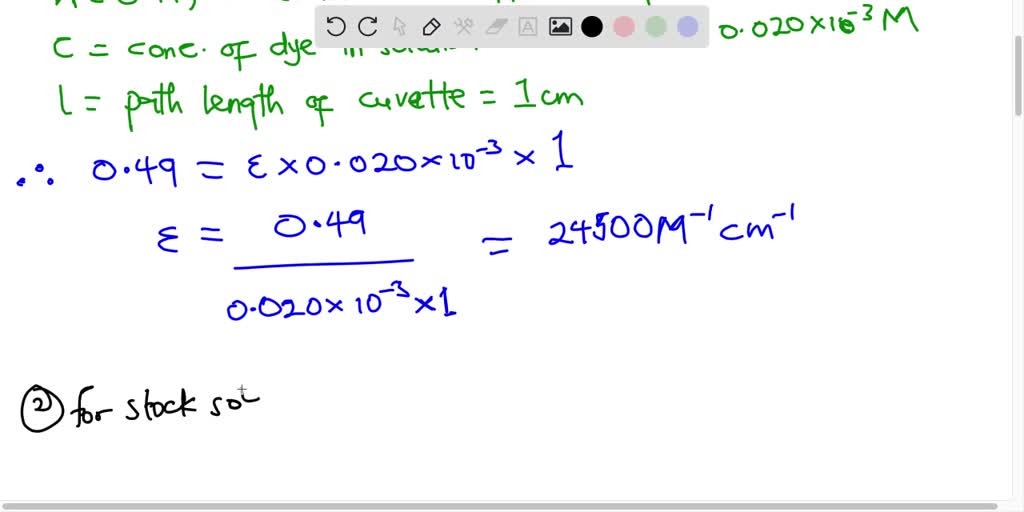 0.020×10⁻³ M
C = conc. of dye in
l = path length of cuvette = 1cm
∴ 0.49 = ε × 0.020×10⁻³ × 1
ε = 0.49 / 0.020×10⁻³×1 = 24500M⁻¹ cm⁻¹
② for stock sol